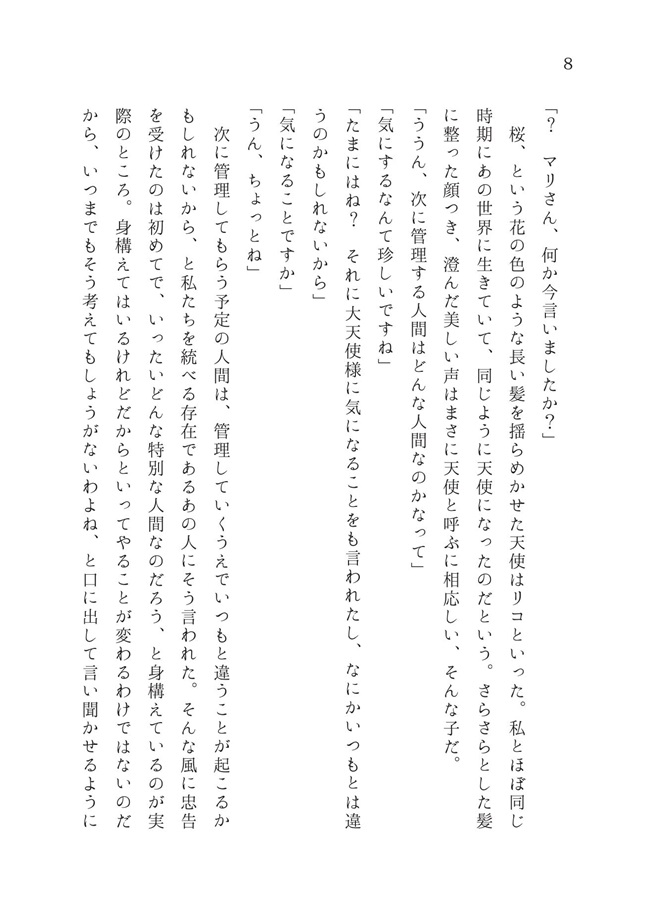 8
「？　マリさん、何か今言いましたか？」
　桜、という花の色のような長い髪を揺らめかせた天使はリコといった。私とほぼ同じ
時期にあの世界に生きていて、同じように天使になったのだという。さらさらとした髪
に整った顔つき、澄んだ美しい声はまさに天使と呼ぶに相応しい、そんな子だ。
「ううん、次に管理する人間はどんな人間なのかなって」
「気にするなんて珍しいですね」
「たまにはね？　それに大天使様に気になることをも言われたし、なにかいつもとは違
うのかもしれないから」
「気になることですか」
「うん、ちょっとね」
　次に管理してもらう予定の人間は、管理していくうえでいつもと違うことが起こるか
もしれないから、と私たちを統べる存在であるあの人にそう言われた。そんな風に忠告
を受けたのは初めてで、いったいどんな特別な人間なのだろう、と身構えているのが実
際のところ。身構えてはいるけれどだからといってやることが変わるわけではないのだ
から、いつまでもそう考えてもしょうがないわよね、と口に出して言い聞かせるように